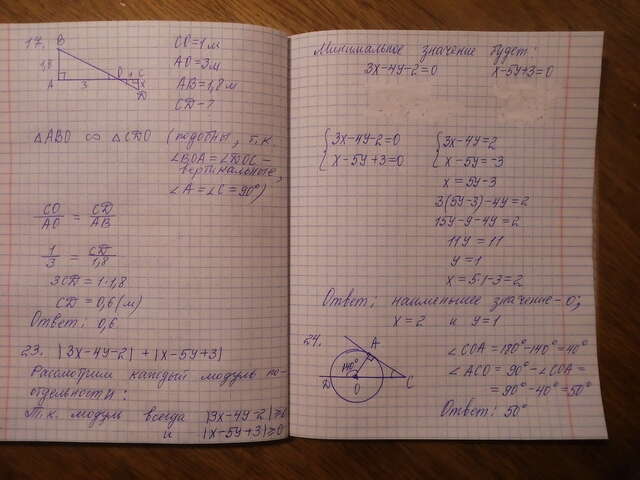 17.
B
1,8
A
3
O
1
C
x
D
CO=1м
AO=3м
AB=1,8м
CD-?
△ABO ∽ △CDO (подобны, т.к.
∠BOA=∠DOC-
вертикальные,
∠A=∠C=90°)
CO/AO = CD/AB
1/3 = CD/1,8
3CD=1·1,8
CD=0,6(м)
Ответ: 0,6
23. |3x-4y-2|+|x-5y+3|
Рассмотрим каждый модуль по-
отдельности:
Т.к. модуль всегда |3x-4y-2|≥0
и |x-5y+3|≥0
Минимальное значение будет:
3x-4y-2=0 x-5y+3=0
{3x-4y-2=0
x-5y+3=0
{3x-4y=2
x-5y=-3
x=5y-3
3(5y-3)-4y=2
15y-9-4y=2
11y=11
y=1
x=5·1-3=2
Ответ: наименьшее значение-0;
x=2 и y=1
24.
A
140°
D
O
C
∠COA=180°-140°=40°
∠ACO=90°-∠COA=
=90°-40°=50°
Ответ: 50°